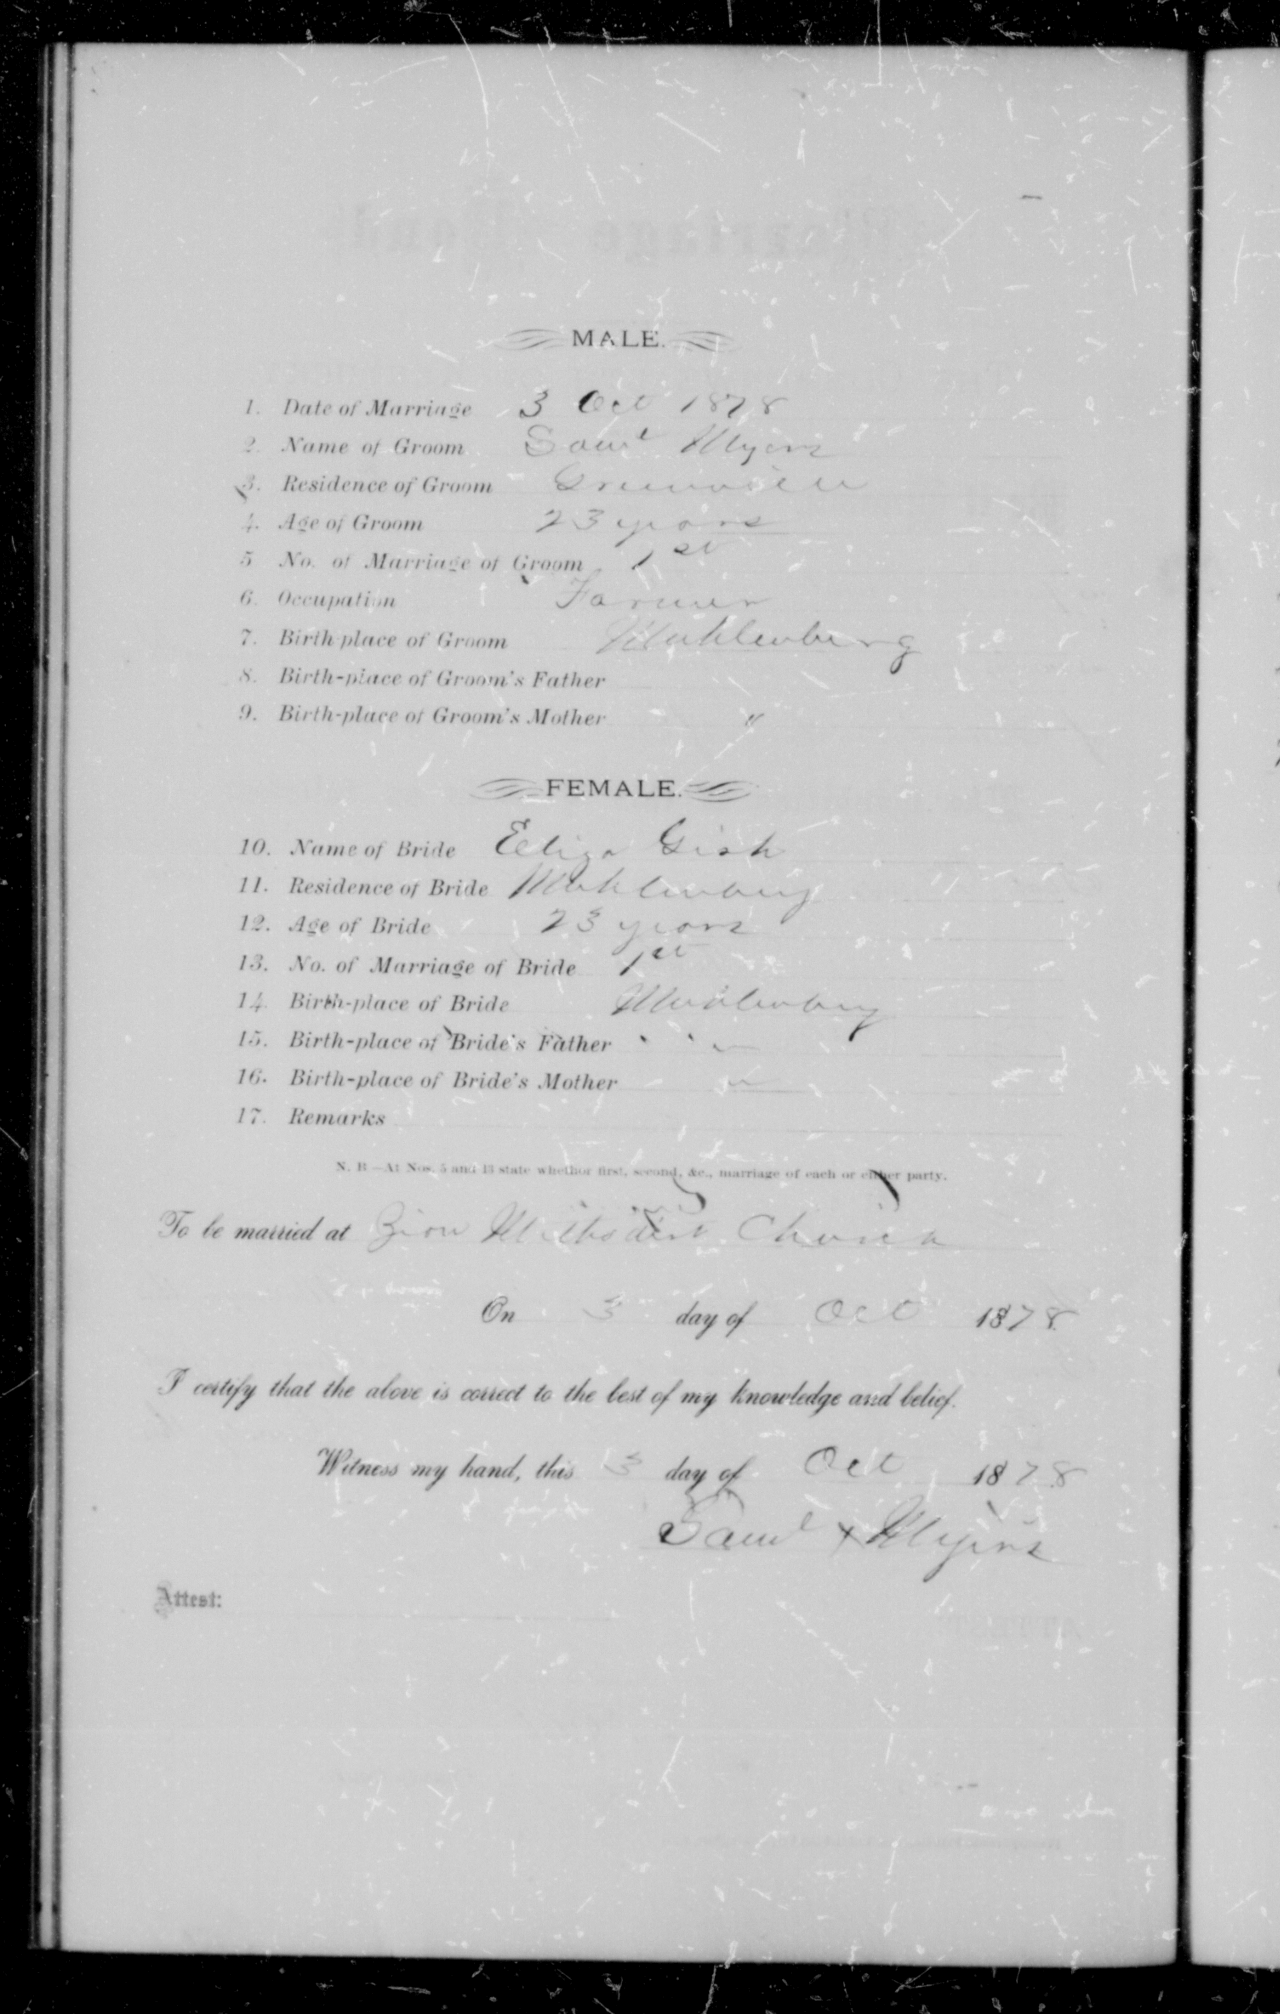 MALE.
1. Date of Marriage 3 Oct 1878
2. Name of Groom Saml Myers
3. Residence of Groom Greenville
4. Age of Groom 23 years
5 No. of Marriage of Groom 1st
6. Occupation Farmer
7. Birth-place of Groom Muhlenberg
8. Birth-place of Groom's Father
9. Birth-place of Groom's Mother "
FEMALE.
10. Name of Bride Eliza Gish
11. Residence of Bride Muhlenberg
12. Age of Bride 23 years
13. No. of Marriage of Bride 1st
14. Birth-place of Bride Muhlenberg
15. Birth-place of Bride's Father "
16. Birth-place of Bride's Mother "
17. Remarks
N. B.—At Nos. 5 and 13 state whether first, second, &c., marriage of each or either party.
To be married at Zion Methodist Church
On 3 day of Oct 1878
I certify that the above is correct to the best of my knowledge and belief.
Witness my hand, this 3 day of Oct 1878
Saml x Myers
Attest: